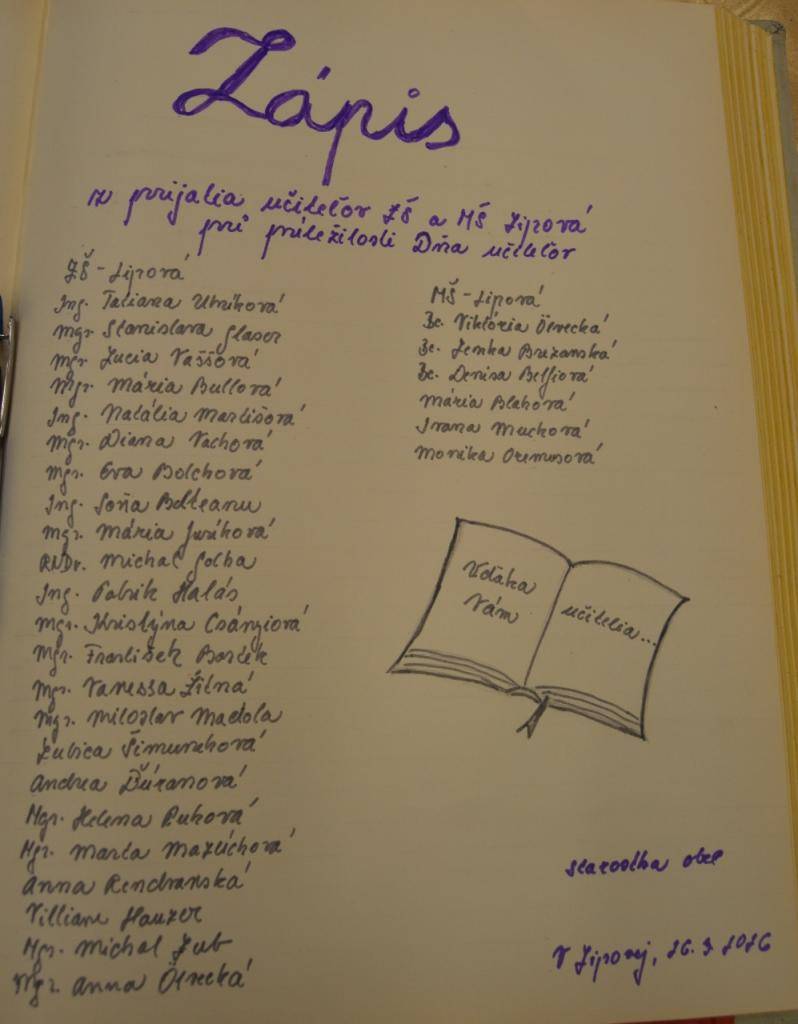 Zápis
z prijatia učiteľov ZŠ a MŠ Lipová
pri príležitosti Dňa učiteľov
ZŠ - Lipová
Ing. Tatiana Uhríková
Mgr. Stanislava Glaser
Mgr. Lucia Vaššová
Mgr. Mária Bullová
Ing. Natália Martišová
Mgr. Diana Vachová
Mgr. Eva Bolchová
Ing. Soňa Belteanu
Mgr. Mária Juríková
RNDr. Michal Golha
Ing. Patrik Halás
Mgr. Kristýna Csányiová
Mgr. František Borčík
Mgr. Vanessa Žitná
Mgr. Miloslav Madola
Ľubica Šimunková
Andrea Ďúranová
Mgr. Helena Zuková
Mgr. Marta Mazúchová
Anna Rendranská
Villiam Hauzer
Mgr. Michal Zub
Mgr. Anna Ölvecká
MŠ - Lipová
Bc. Viktória Ölvecká
Bc. Lenka Brezanská
Bc. Denisa Belfiová
Mária Blahová
Ivana Muchová
Monika Oremusová
Vďaka
Vám
učitelia...
starostka obce
V Lipovej, 26.3 2026